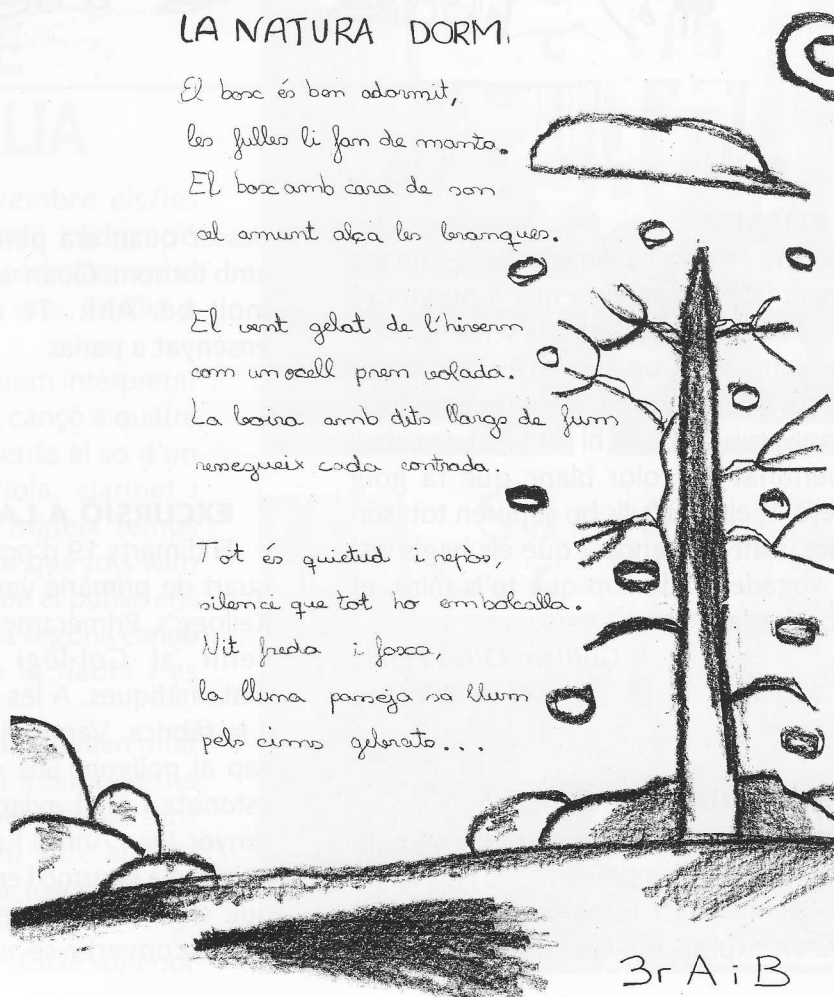 LA NATURA DORM.
El bosc és ben adormit,
les fulles li fan de manta.
El bosc amb cara de son
al amunt alça les branques.
El vent gelat de l'hivern
com un ocell pren volada.
La boira amb dits llargs de fum
ressegueix cada contrada.
Tot és quietud i repòs,
silenci que tot ho embolcalla.
Nit freda i fosca,
la lluna passeja sa llum
pels cims gebrats...
3r A i B